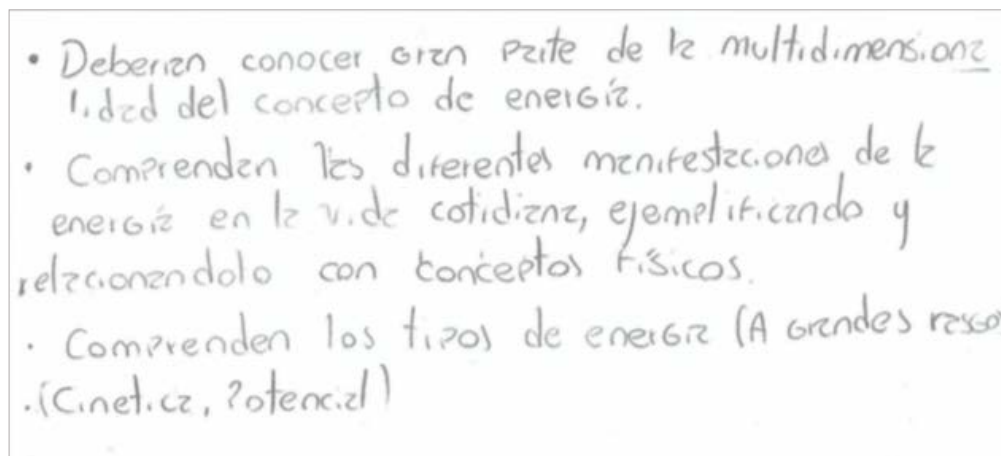 • Deberian conocer gran parte de la multidimensiona
lidad del concepto de energía.
• Comprendan las diferentes manifestaciones de la
energía en la vida cotidiana, ejemplificando y
relacionandolo con conceptos físicos.
• Comprenden los tipos de energía (A grandes rasgo
. (Cinetica, Potencial)